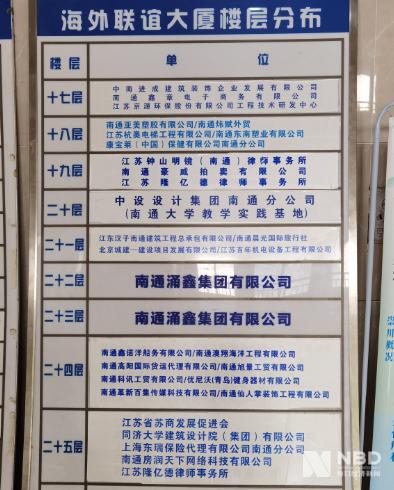 海外联谊大厦楼层分布
楼层 单位
十七层
中南进成建筑装饰企业发展有限公司
南通鑫豪电子商务有限公司
江苏京源环保股份有限公司工程技术研发中心
十八层
南通亚美塑胶有限公司/南通炜赋外贸
江苏杭奥电梯工程有限公司/南通东南塑业有限公司
康宝莱(中国)保健有限公司南通分公司
十九层
江苏钟山明镜(南通)律师事务所
南通豪威拍卖有限公司
江苏隆亿德律师事务所
二十层
中设设计集团南通分公司
(南通大学教学实践基地)
二十一层
江东汉子南通建筑工程总承包有限公司/南通晨光国际旅行社
北京城建一建设项目发展有限公司/江苏百年机电设备工程有限公司
二十二层
南通涌鑫集团有限公司
二十三层
南通涌鑫集团有限公司
二十四层
南通鑫诺洋船务有限公司/南通澳翔海洋工程有限公司
南通高阳国际货运代理有限公司/南通旭景工贸有限公司
南通科讯工贸有限公司/优尼沃(青岛)健身器材有限公司
南通革新百集传媒科技有限公司/南通仙人掌装饰工程有限公司
二十五层
江苏省苏商发展促进会
同济大学建筑设计院(集团)有限公司
上海东瑞保险代理有限公司南通分公司
南通房润天下网络科技有限公司
江苏隆亿德律师事务所
NBD
每日经济新闻